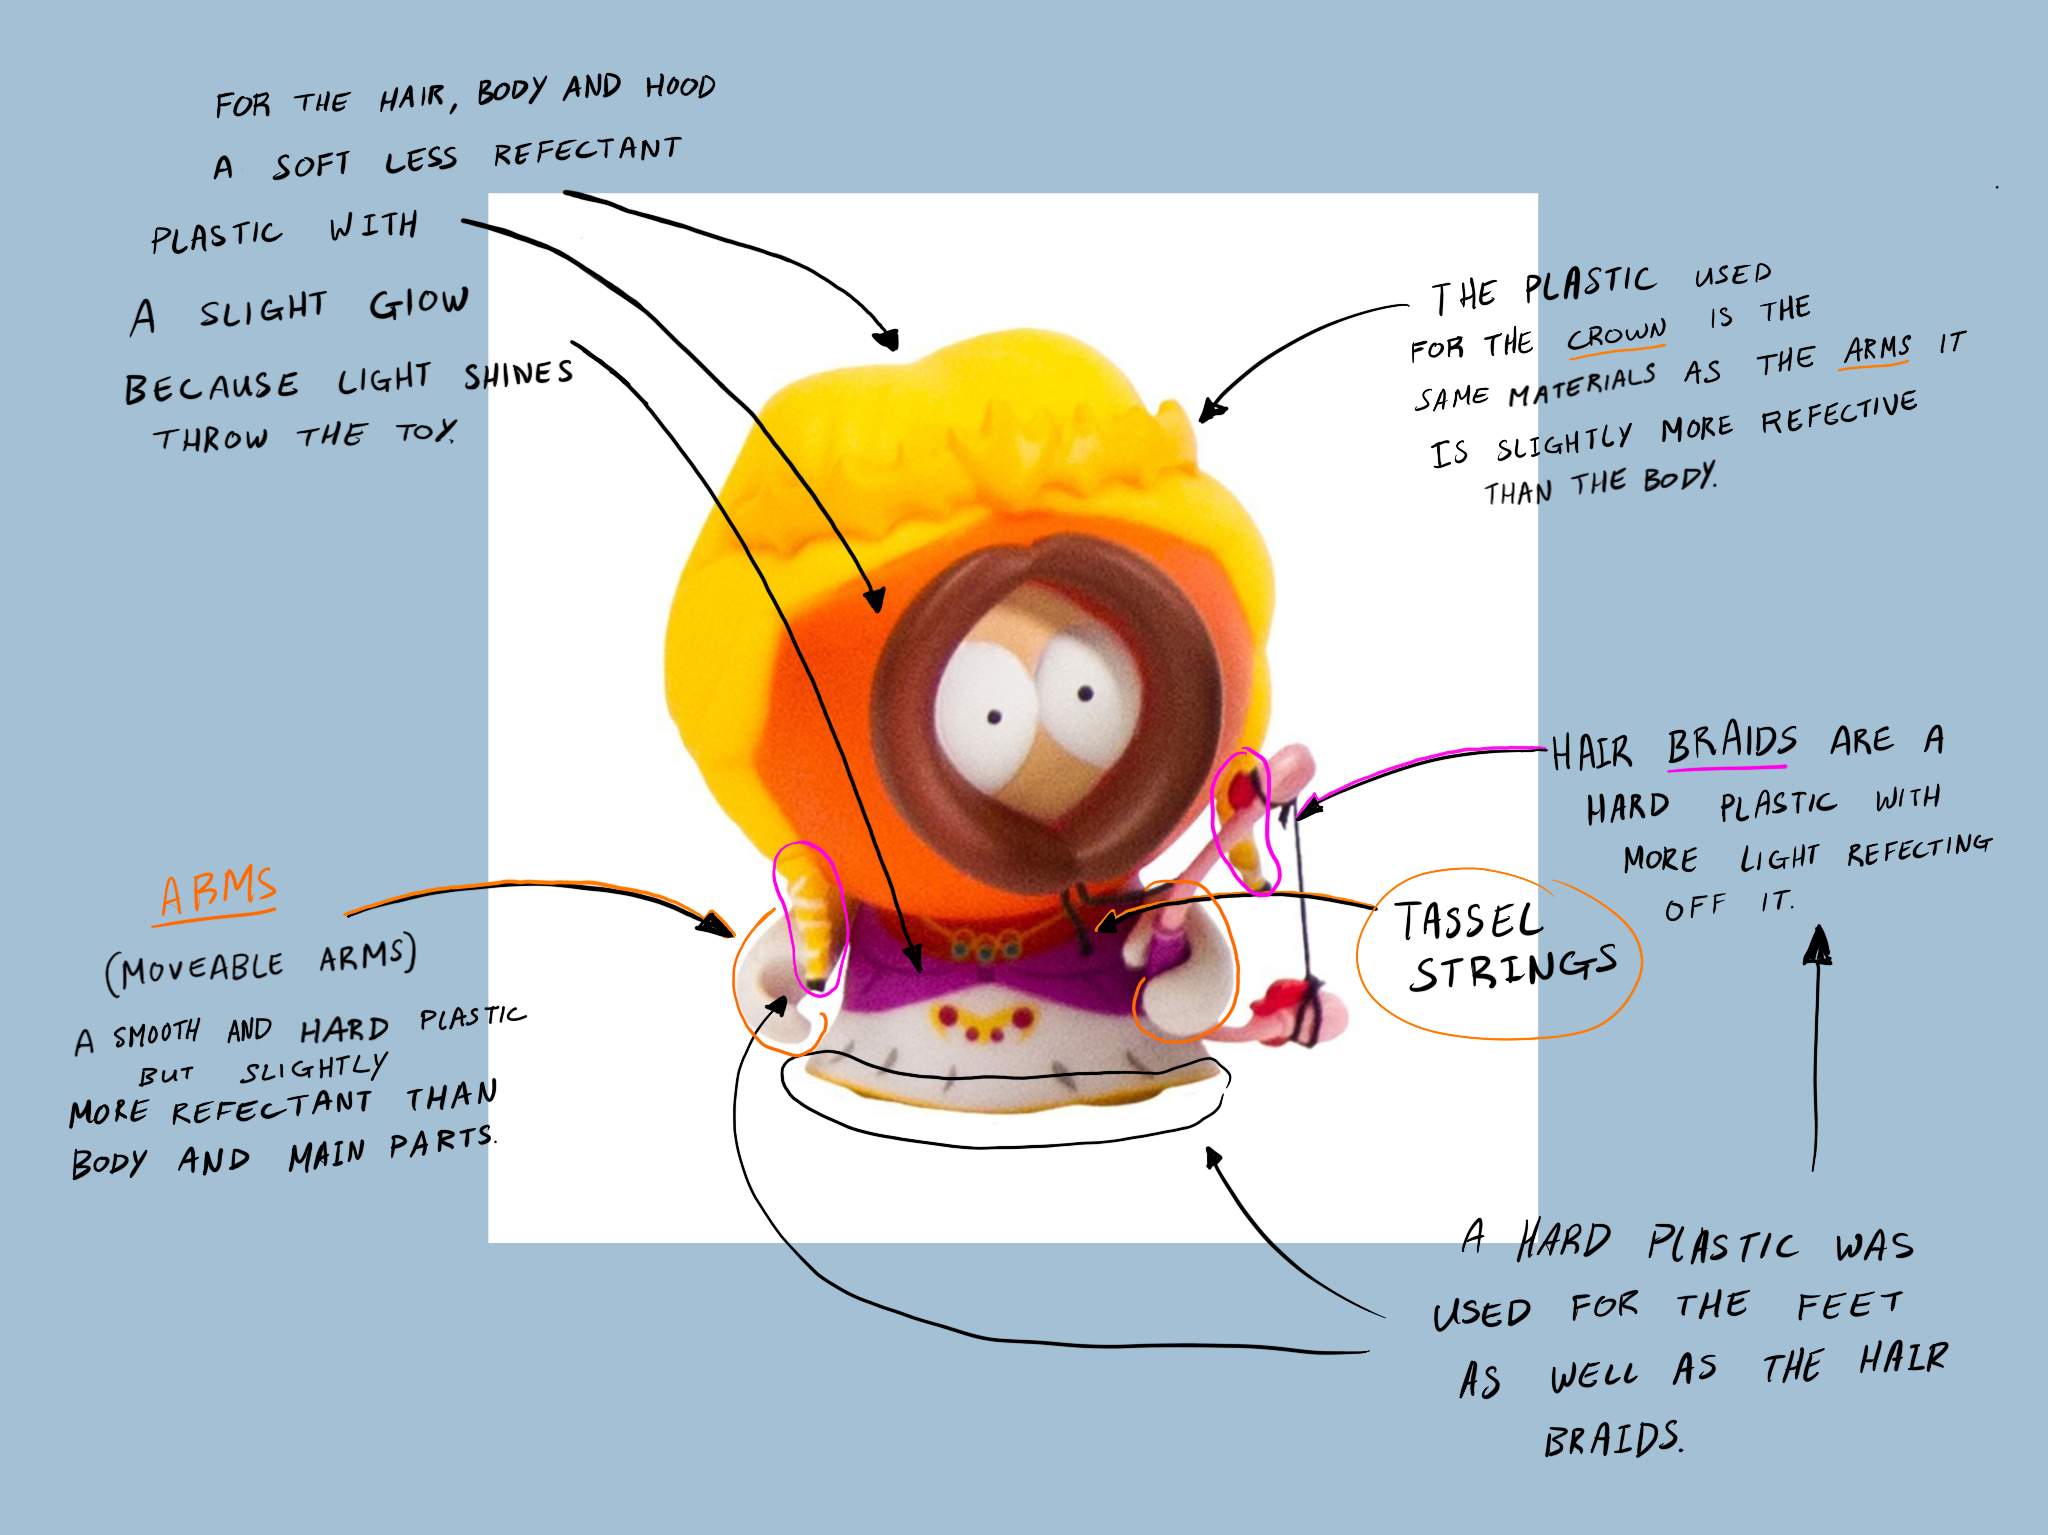 FOR THE HAIR, BODY AND HOOD
A SOFT LESS REFECTANT
PLASTIC WITH
A SLIGHT GLOW
BECAUSE LIGHT SHINES
THROW THE TOY.
THE PLASTIC USED
FOR THE CROWN IS THE
SAME MATERIALS AS THE ARMS IT
IS SLIGHTLY MORE REFECTIVE
THAN THE BODY.
HAIR BRAIDS ARE A
HARD PLASTIC WITH
MORE LIGHT REFECTING
OFF IT.
ARMS
(MOVEABLE ARMS)
A SMOOTH AND HARD PLASTIC
BUT SLIGHTLY
MORE REFECTANT THAN
BODY AND MAIN PARTS.
TASSEL
STRINGS
A HARD PLASTIC WAS
USED FOR THE FEET
AS WELL AS THE HAIR
BRAIDS.